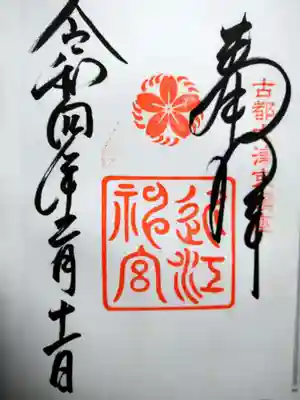 奉拝
古都大津
近江
神宮
令和四年十二月十一日